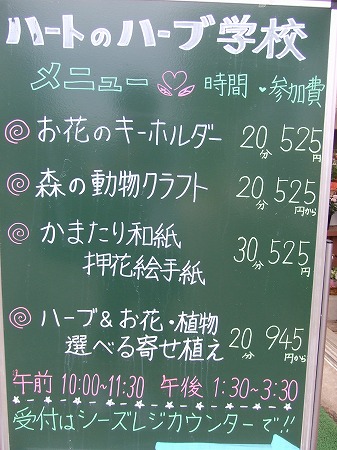 ハートのハーブ学校
メニュー♡ 時間・参加費
お花のキーホルダー 20分 525円
森の動物クラフト 20分 525円から
かまたり和紙
押花絵手紙 30分 525円
ハーブ&お花・植物
選べる寄せ植え 20分 945円から
午前 10:00~11:30 午後 1:30~3:30
受付はシーズレジカウンターで!!